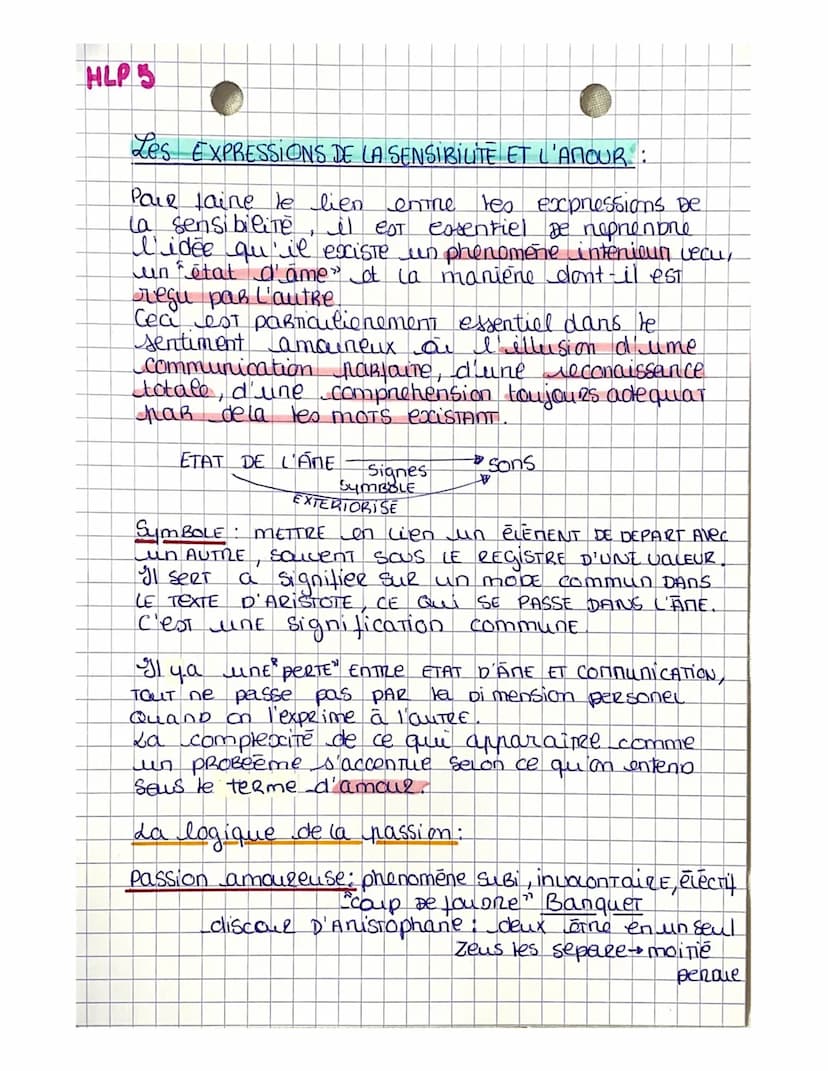 HLP 5
Les EXPRESSIONS DE LA SENSIBILITÉ ET L'AMOUR :
Pour faire le lien entre les expressions de
la sensibilité, il est essentiel de reprendre
l'idée qu'il existe un phenomène interieur vecu,
un "état d'âme" et la manière dont-il est
reçu par l'autre.
Ceci est particulierement essentiel dans le
sentiment amoureux où l'illusion d'une
communication parfaite, d'une reconaissance
totale, d'une comprehension toujours adequat
par dela les mots existant.
ETAT DE L'ÂME
signes
sons
SYMBOLE
EXTERIORISE
SYMBOLE : METTRE en lien un ÉLÉMENT DE DEPART AVEC
un AUTRE, souvent sous LE REGISTRE D'UNE VALEUR.
Il sert a signifier sur un mode commun DANS
LE TEXTE D'ARISTOTE, CE QUI SE PASSE DANS L'ÂME.
C'est une signification commune.
Il y a une "PERTE" ENTRE ETAT D'ÂME ET COMMUNICATION,
TOUT ne passe pas PAR la Dimension personel
Quand on l'exprime à l'autre.
La complexité de ce qui apparaitre comme
un problème s'accentue selon ce qu'on entend
sous le terme d'amour.
La logique de la passion :
Passion amoureuse : phenomène subi, involontaire, électif
"coup de foudre" Banquet
discour D'Aristophane : deux être en un seul
Zeus les separe → moitié
perdue